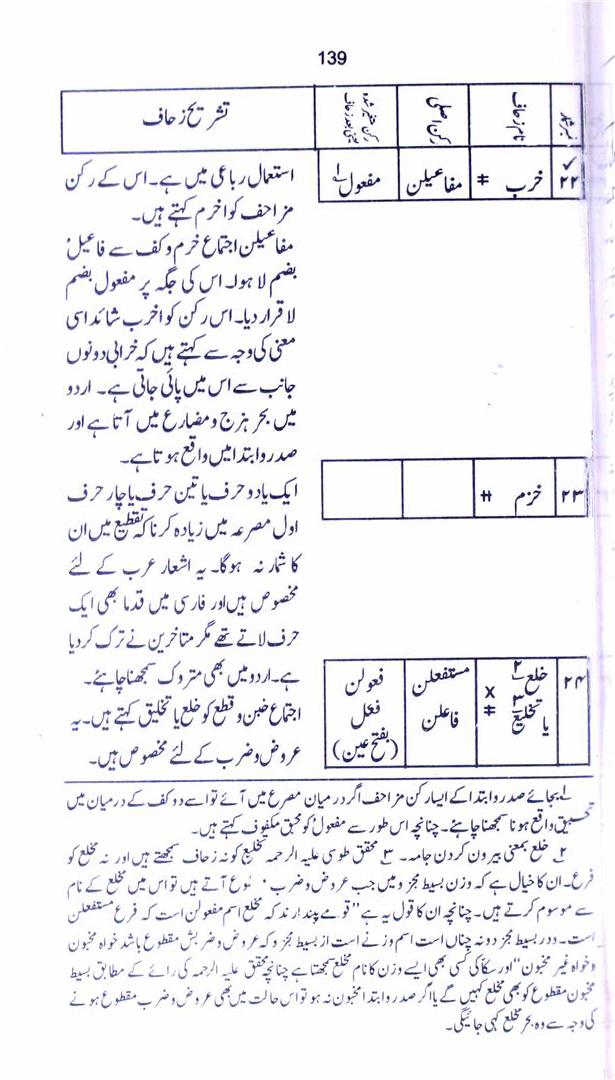 139
نمبر شمار | نام زحاف | رکن اصلی | رکن متغیر شدہ یعنی بعد زحاف | تشریح زحاف
۲۲ | خرب ‡ | مفاعیلن | مفعول ۱
استعمال رباعی میں ہے۔ اس کے رکن
مزاحف کو اخرم کہتے ہیں۔
مفاعیلن اجتماع خرم و کف سے فاعیلُ
بضم لا ہوا۔ اس کی جگہ پر مفعول بضم
لا قرار دیا۔ اس رکن کو اخرب شائد اسی
معنی کی وجہ سے کہتے ہیں کہ خرابی دونوں
جانب سے اس میں پائی جاتی ہے۔ اردو
میں بحر ہزج و مضارع میں آتا ہے اور
صدر و ابتدا میں واقع ہوتا ہے۔
۲۳ | خزم ‡
ایک یا دو حرف یا تین حرف یا چار حرف
اول مصرعہ میں زیادہ کرنا کہ تقطیع میں ان
کا شمار نہ ہوگا۔ یہ اشعار عرب کے لئے
مخصوص ہیں اور فارسی میں قدما بھی ایک
حرف لاتے تھے مگر متاخرین نے ترک کردیا
ہے۔ اردو میں بھی متروک سمجھنا چاہئے۔
۲۴ | خلع ۲ یا تخلیع ۳ × ‡ | مستفعلن فاعلن | فعولن فعَل (بفتح عین)
اجتماع خبن و قطع کو خلع یا تخلیق کہتے ہیں۔ یہ
عروض و ضرب کے لئے مخصوص ہیں۔
۱ بجائے صدر و ابتدا کے ایسا رکن مزاحف اگر درمیان مصرع میں آئے تو اسے دو کف کے درمیان میں
تحبیق واقع ہونا سمجھنا چاہئے۔ چنانچہ اس طور سے مفعولُ کو محبق مکفوف کہتے ہیں۔
۲ خلع بمعنی بیرون کردن جامہ۔ ۳ محقق طوسی علیہ الرحمہ تخلیع کو نہ زحاف سمجھتے ہیں اور نہ مخلع کو
فرع۔ ان کا خیال ہے کہ وزن بسیط مجزو میں جب عروض و ضرب آتے ہیں تو اس میں مخلع کے نام
سے موسوم کرتے ہیں۔ چنانچہ ان کا قول یہ ہے ”قومے پندارند کہ مخلع اسم مفعولن است کہ فرع مستفعلن
است۔ در بسیط مجزو و نہ چناں است اسم وزنے است از بسیط مجزو کہ عروض و ضربش مقطوع باشد خواہ مخبون
و خواہ غیر مخبون“ اور سکاکی بھی ایسے وزن کا نام مخلع سمجھتا ہے چنانچہ محقق علیہ الرحمہ کی رائے کے مطابق بسیط
مخبون مقطوع کو بھی مخلع کہیں گے یا اگر صدر و ابتدا مخبون نہ ہو تو اس حالت میں بھی عروض و ضرب مقطوع ہونے
کی وجہ سے وہ بحر مخلع کہی جائیگی۔